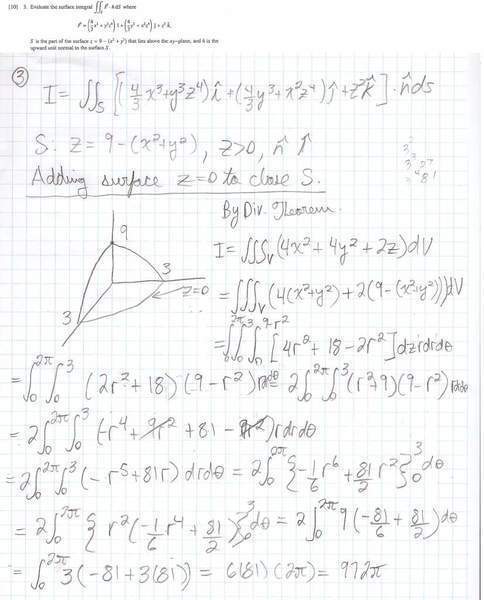 [10] 3. Evaluate the surface integral ∬_S F⃗ · n̂ dS where
F⃗ = (4/3 x³ + y³z⁴) î + (4/3 y³ + x²z⁴) ĵ + z² k̂.
S is the part of the surface z = 9 − (x² + y²) that lies above the xy-plane, and n̂ is the
upward unit normal to the surface S.
③ I = ∬_S [(4/3 x³+y³z⁴)î+(4/3 y³+x²z⁴)ĵ+z²k̂]·n̂ds
S: z = 9-(x²+y²), z>0, n̂ ↑
Adding surface z=0 to close S.
By Div. Theorem.
9
3
3
z=0
I = ∭_V (4x²+4y²+2z)dV
= ∭_V (4(x²+y²)+2(9-(x²+y²)))dV
= ∫₀^2π ∫₀³ ∫₀^9-r² [4r²+18-2r²]dzrdrdθ
= ∫₀^2π ∫₀³ (2r²+18)(9-r²)rdrdθ = 2∫₀^2π ∫₀³ (r²+9)(9-r²)rdrdθ
= 2∫₀^2π ∫₀³ (-r⁴+9r²+81-9r²)rdrdθ
= 2∫₀^2π ∫₀³ (-r⁵+81r)drdθ = 2∫₀^2π {-1/6 r⁶+81/2 r²}₀³ dθ
= 2∫₀^2π {r²(-1/6 r⁴+81/2)}₀³ dθ = 2∫₀^2π 9(-81/6+81/2)dθ
= ∫₀^2π 3(-81+3(81)) = 6(81)(2π) = 972π